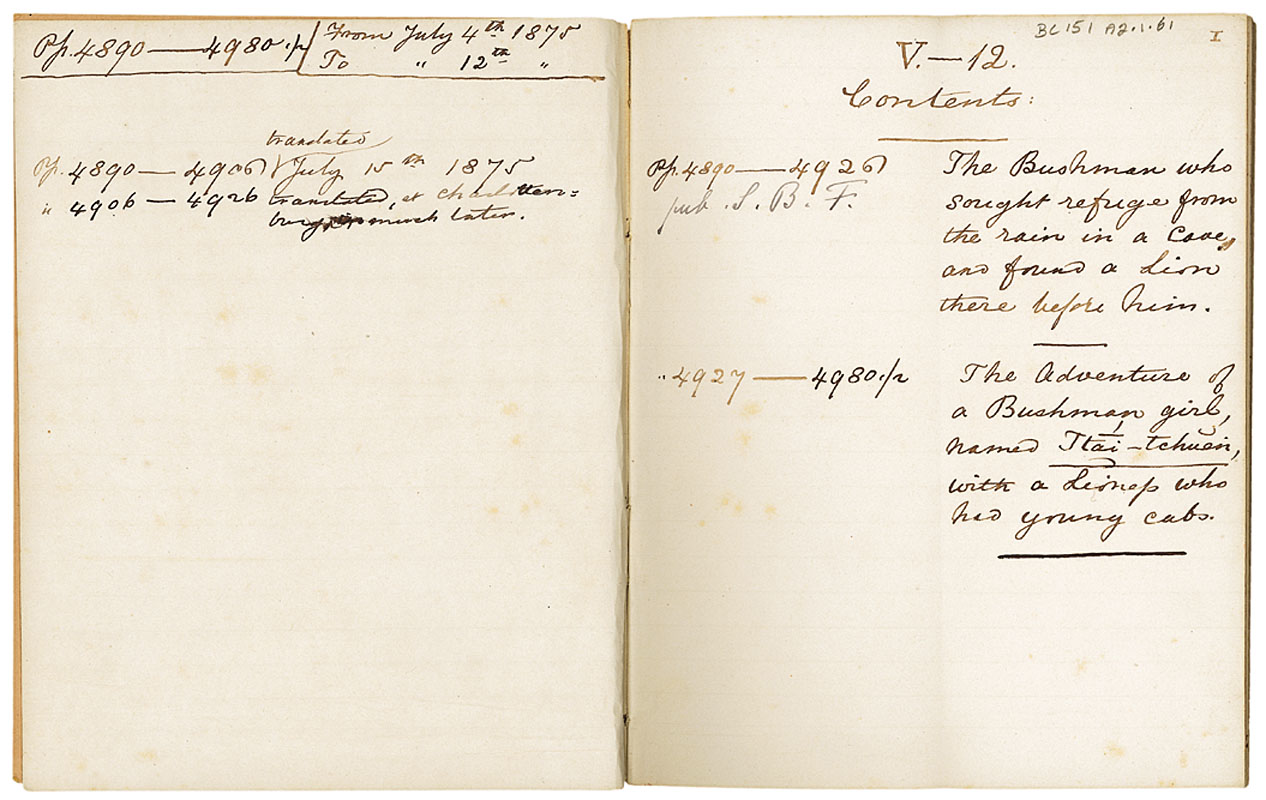 Pp. 4890 — 4980½ From July 4th 1875
To " 12th "
translated
Pp. 4890 — 4906 July 15th 1875
" 4906 — 4926 translated, at Charlotten=
burg, much later.
BC 151 A2.1.61
I
V. — 12.
Contents:
Pp. 4890 — 4926 The Bushman who
pub. S. B. F. sought refuge from
the rain in a Cave,
and found a Lion
there before him.
" 4927 — 4980½ The Adventure of
a Bushman girl,
named
with a Lioness who
had young cubs.